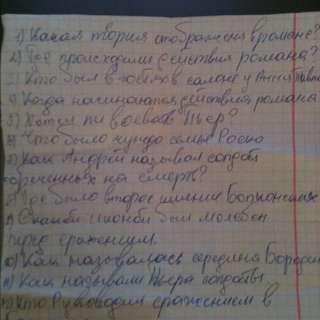 1) Какая теория отображена в романе?
2) Где происходили действия романа?
Кто был в гостях в салоне у Анны Павл
4) Когда начинаются действия романа
5) Хотел ли воевать Пьер?
6) Что было чуждо семье Росто
7) Как Андрей называл солдат
обреченных на смерть?
8) Где было второе имение Болконских
9) С какой иконой был молебен
перед сражением.
10) Как называлась середина Бородин
11) Как называли Пьера солдаты
12) Кто руководил сражением в